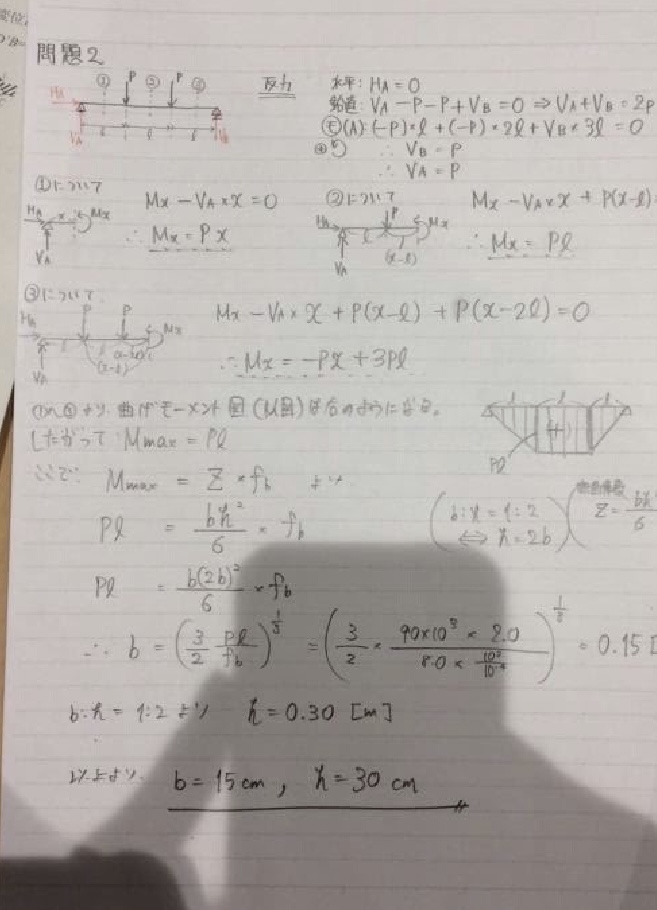 問題2
① P ② P ③
HA
VA l l l VB
反力
水平: HA = 0
鉛直: VA - P - P + VB = 0 ⇒ VA + VB = 2P
(A): (-P)×l + (-P)×2l + VB×3l = 0
∴ VB = P
∴ VA = P
①について
HA x Mx
VA
Mx - VA×x = 0
∴ Mx = Px
②について
HA l P Mx
(x-l)
VA
Mx - VA×x + P(x-l)
∴ Mx = Pl
③について
HA P P Mx
l l (x-2l)
(x-l)
VA
Mx - VA×x + P(x-l) + P(x-2l) = 0
∴ Mx = -Px + 3Pl
①〜③より 曲げモーメント図(M図)は右のようになる。
l l l
(+)
Pl
したがって Mmax = Pl
ここで Mmax = Z × fb より
Pl = bh²/6 × fb
(b:h = 1:2 ⇔ h = 2b)
断面係数 Z = bh²/6
Pl = b(2b)²/6 × fb
∴ b = (3/2 Pl/fb)^(1/3) = (3/2 × 90×10³ × 2.0 / 8.0 × 10²/10⁻⁴)^(1/3) = 0.15 [
b:h = 1:2 より h = 0.30 [m]
以上より. b = 15 cm , h = 30 cm